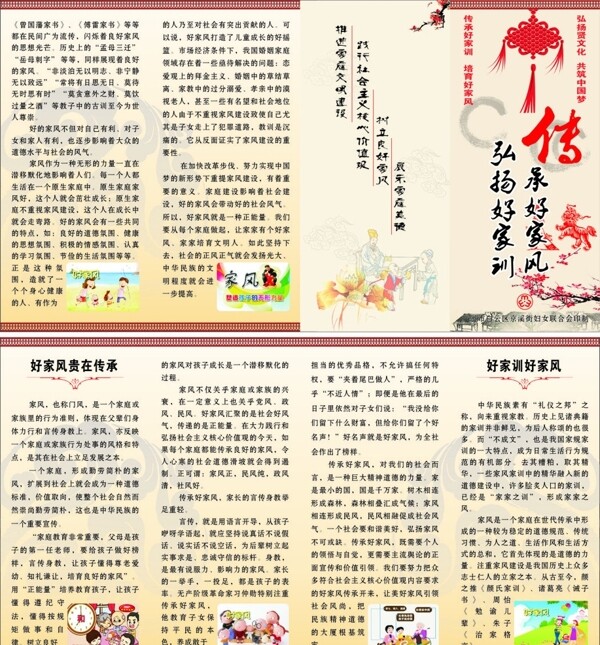 《曾国藩家书》、《傅雷家书》等等
都在民间广为流传，闪烁着良好家风
的思想光芒。历史上的“孟母三迁”
“岳母刺字”等等，同样展现着良好
的家风。“非淡泊无以明志，非宁静
无以致远”“常将有日思无日，莫待
无时思有时”“莫贪意外之财，莫饮
过量之酒”等教子中的古训至今为世
人尊崇。
好的家风不但对自己有利，对子
女和家人有利，也逐步影响着大众的
道德水平与社会的风气。
家风作为一种无形的力量一直在
潜移默化地影响着人们。每一个人都
生活在一个原生家庭中，原生家庭家
风好，这个人就会茁壮成长；原生家
庭不重视家风建设，这个人在成长中
就会走弯路。好的家风会有一些共同
的特点，如：良好的道德氛围、健康
的思想氛围、积极的情感氛围、认真
的学习氛围、节俭的生活氛围等等。
正是这种氛
围，造就了一
个个身心健康
的人、有作为
好家风
的人乃至对社会有突出贡献的人。可
以说，好家风打造了儿童成长的好摇
篮。市场经济条件下，我国婚姻家庭
领域存在着一些亟待解决的问题：恋
爱观上的拜金主义、婚姻中的草结草
离、家教中的过分溺爱、孝亲中的漠
视老人，甚至一些有名望和社会地位
的人由于不重视家风建设致使自己尤
其是子女走上了犯罪道路，教训是沉
痛的。它从反面证实了家风建设的重
要性。
在加快改革步伐、努力实现中国
梦的新形势下重提家风建设，有着重
要的意义。家庭建设影响着社会建
设，好的家风会带动好的社会风气。
所以，好家风就是一种正能量。我们要
从每个家庭做起，让家家有个好家
风、家家培育文明人。如此坚持下
去，社会的正风正气就会发扬光大、
中华民族的文
明程度就会进
一步提高。
家风
推进家庭文明建设
践行社会主义核心价值观
树立良好家风
展示家庭美德
弘扬贤文化 共筑中国梦
传承好家训 培育好家风
传承好家风
弘扬好家训
白云区京溪街妇女联合会印制
好家风贵在传承
家风，也称门风，是一个家庭或
家族里的行为准则，体现在父辈们身
体力行和言传身教上。家风，亦反映
一个家庭或家族行为处事的风格和特
点，是其在社会上立足发展之本。
一个家庭，形成勤劳简朴的家
风，扩展到社会上就会成为一种道德
标准，价值取向，使整个社会自然而
然崇尚勤劳简朴，这也是中华民族的
一个重要宣传。
“家庭教育非常重要，父母是孩
子的第一任老师，要给孩子做好榜
样，言传身教，让孩子懂得尊老爱
幼、知礼谦让，培育良好的家风”。
用“正能量”培养教育孩子，让孩子
懂得遵纪守
法，懂得按规
矩做事和自
律，树立良好
和
的家风对孩子成长是一个潜移默化的
过程。
家风不仅关乎家庭或家族的兴
衰，在一定意义上也关乎党风、政
风、民风。好家风汇聚的是社会好风
气，传递的是正能量。在大力践行和
弘扬社会主义核心价值观的今天，如
果每个家庭都能传承良好的家风，令
人心寒的社会道德滑坡就会得到遏
制。正可谓：家风正，民风纯，政风
清，社风好。
传承好家风，家长的言传身教举
足重轻。
言传，就是用语言开导，从孩子
咿呀学语起，就应坚持说真话不说假
话、说实话不说空话，为后辈树立起
实事求是、忠诚守信的标杆。身教，
是最有说服力、影响力的家风。家长
的一举手，一投足，都是孩子的表
率。无产阶级革命家习仲勋特别注重
传承好家风，
他教育子女保
持平民的本
色，养成敢于
担当的优秀品格，不允许搞任何特
权，要“夹着尾巴做人”，严格的几
乎“不近人情”；即便是他在最后的
日子里依然对子女们说：“我没给你
们留下什么财富，但给你们留了个好
名声！”好名声就是好家风，为全社
会作出了榜样。
传承好家风，对我们的社会而
言，是一种巨大精神道德的力量。家
是最小的国，国是千万家。树木相连
形成森林，森林相叠汇成气候；家风
相连形成民风，民风相融促成社会风
气。一个社会要和谐美好，弘扬家风
不可或缺。传承好家风，既需要个人
的领悟与自觉，更需要主流舆论的正
面宣传和价值引领。我们要努力把众
多符合社会主义核心价值观内容要求
的好家风传承开来，让美好家风引领
社会风尚，把
民族精神道德
的大厦根基筑
好家训好家风
中华民族素有“礼仪之邦”之
称，向来重视家教。历史上见诸典籍
的家训并非鲜见，为后人称颂的也很
多。而“不成文”，也是我国家规家
训的一大特点，成为日常生活行为规
范的有机部分。去其糟粕，取其精
华，一些家风家训中的精华融入新的
道德建设中，许多脍炙人口的家训，
已经是“家家之训”，形成家家之
风。
家风是一个家庭在世代传承中形
成的一种较为稳定的道德规范、传统
习惯、为人之道、生活作风和生活方
式的总和，它首先体现的是道德的力
量。注重家风建设是我国历史上众多
志士仁人的立家之本。从古至今，颜
之推《颜氏家训》、诸葛亮《诫子
书》、周怡
《勉谕儿
辈》、朱子
《治家格
好家风